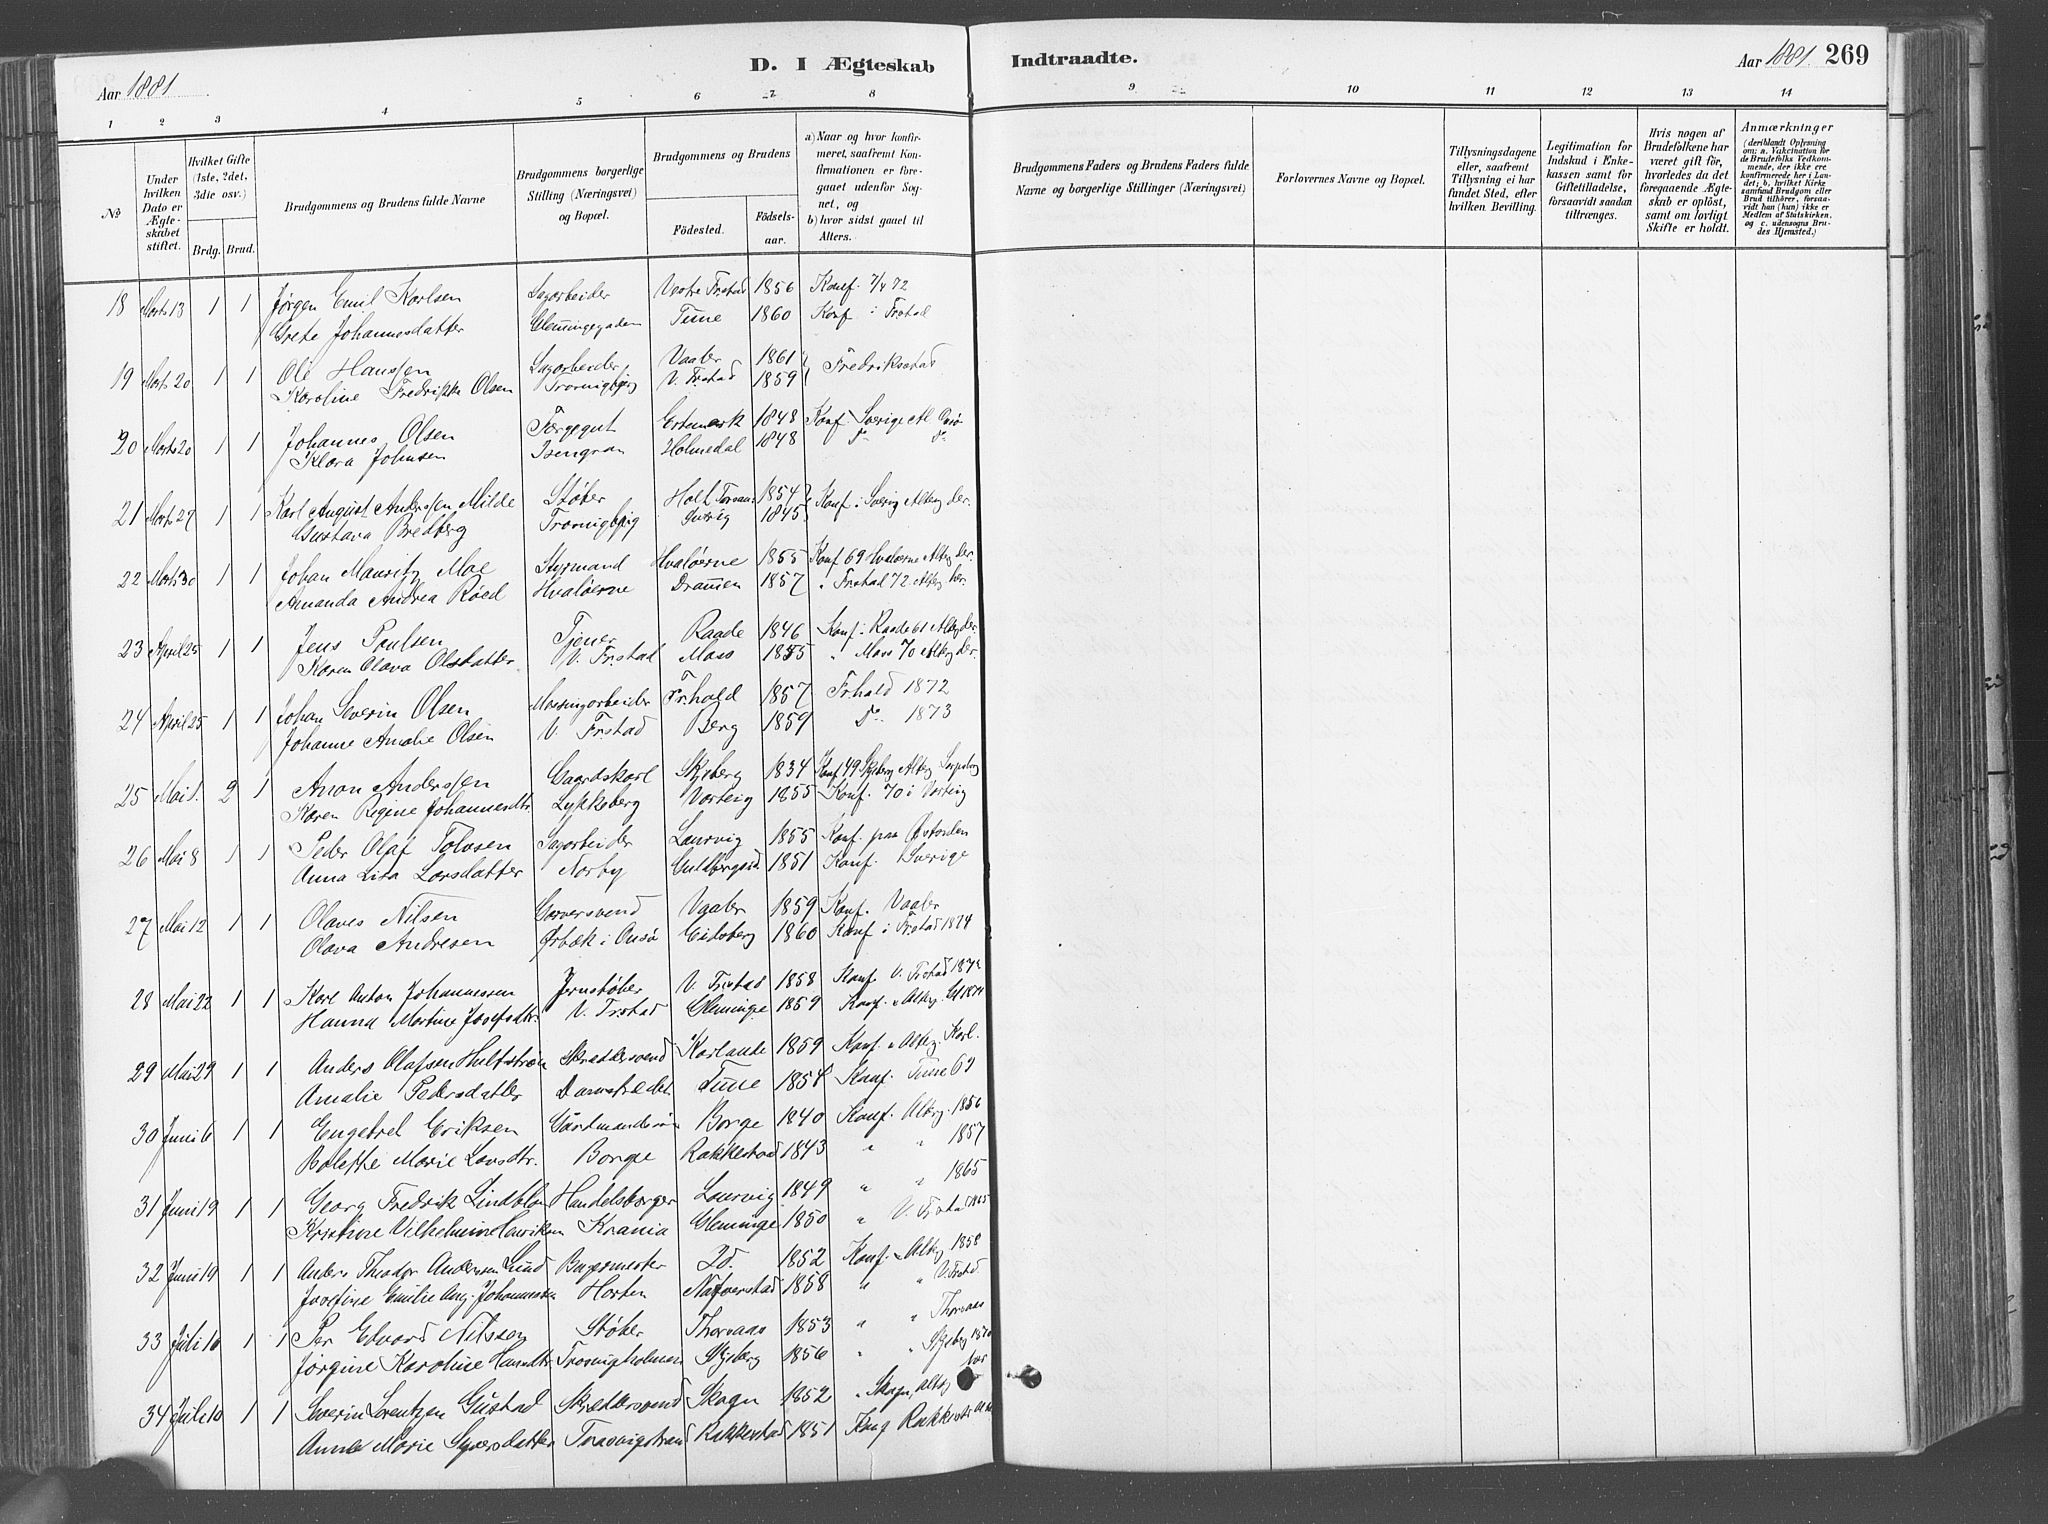 Aar 1881.
D. I Ægteskab
Indtraadte.
Aar 1881. 269
1 2 3 4 5 6 7 8 9 10 11 12 13 14
№
Under hvilken Dato er Ægteskabet stiftet.
Hvilket Gifte (1ste, 2det, 3die osv.)
Brdg. Brud.
Brudgommens og Brudens fulde Navne
Brudgommens borgerlige Stilling (Næringsvei) og Bopæl.
Brudgommens og Brudens
Fødested.
Fødselsaar.
a) Naar og hvor konfirmeret, saafremt Konfirmationen er foregaaet udenfor Sognet, og
b) hvor sidst gaaet til Alters.
Brudgommens Faders og Brudens Faders fulde Navne og borgerlige Stillinger (Næringsvei)
Forlovernes Navne og Bopæl.
Tillysningsdagene eller, saafremt Tillysning ei har fundet Sted, efter hvilken Bevilling.
Legitimation for Indskud i Enkekassen samt for Giftetilladelse, forsaavidt saadan tiltrænges.
Hvis nogen af Brudefolkene har været gift før, hvorledes da det foregaaende Ægteskab er opløst, samt om lovligt Skifte er holdt.
Anmærkninger (deriblandt Oplysning om: a. Vakcination for de Brudefolks Vedkommende, der ikke ere konfirmerede her i Landet; b. hvilket Kirkesamfund Brudgom eller Brud tilhører, forsaavidt han (hun) ikke er Medlem af Statskirken, og c. udensogns Brudes Hjemsted.)
18 Marts 13 1 1 Jørgen Emil Karlsen Sagarbeider Vestre Frstad 1856 Konf. 7/4 72
Grete Johannesdatter Glemmingegaden Tune 1860 Konf i Frstad
19 Marts 20 1 1 Ole Hanssen Sagarbeider Vaaler 1861 Fredriksstad
Karoline Fredrikke Olsen Trosvigbjerg V. Frstad 1859
20 Marts 20 1 1 Johannes Olsen Færgegut Ertemark 1848 Konf Sverige Al Onsø
Klara Johnsen Isengran Holmedal 1848 Do Do
21 Marts 27 1 1 Karl August Andersen Milde Støber Holt 1854 Konf. i Sverig Altbrg der.
Gustava Bredberg Trosvigbjrg 1845
22 Marts 30 1 1 Johan Mauritz Moe Styrmand Hvaløerne 1855 Konf 69 Hvaløerne Altbrg der
Amanda Andrea Røed Hvaløerne Drammen 1857 " Frstad 72 Altbrg her.
23 April 25 1 1 Jens Poulsen Tjener Raade 1846 Konf. i Raade 61 Altbrg der
Karen Olava Olsdatter V. Frstad Moss 1855 " Moss 70 Altbrg der.
24 April 25 1 1 Johan Severin Olsen Messingarbeider Fr.hald 1857 Frhald 1872
Johanne Amalie Olsen V. Frstad Berg 1859 Do 1873
25 Mai 1. 2 1 Anon Anderssen Gaardskarl Skjeberg 1834 Konf 49 Skjeberg Altbrg Sarpsbrg
Karen Regine Johannesdtr. Lykkeberg Varteig 1855 Konf. 70 i Varteig
26 Mai 8 1 1 Peder Olaf Tolvsen Sagarbeider Laurvig 1855 Konf. paa
Anna Lisa Larsdatter Nørby 1851 Konf. Sverige
27 Mai 12 1 1 Olaves Nilsen Garversvend Vaaler 1859 Konf. Vaaler
Olava Andresen Ørbæk i Onsø Eidsberg 1860 Konf i Frstad 1874
28 Mai 22 1 1 Karl Anton Johannessen Jernstøber V. Frstad 1858 Konf. V. Frstad 1872
Hanna Martine Josefsdtr. V. Frstad Glemminge 1859 Konf. " Altbrg. Gl 1874
29 Mai 29 1 1 Anders Olafsen Hultstrøm Skræddersvend Karlanda 1859 Konf. " Altbrg. Karl.
Amalie Pedersdatter Damstrædet Tune 1854 Konf. Tune 69
30 Juni 6 1 1 Engebret Eriksen Gaardmandssøn Borge 1840 Konf. Altbrg. 1856
Bolette Marie Larsdtr. Borge Rakkestad 1843 " " 1857
31 Juni 19 1 1 Georg Fredrik Lindblom Handelsborger Laurvig 1849 " " 1865
Kristine Vilhelmine Henriksen Krania Glemminge 1850 " V. Frstad 1865
32 Juni 19 1 1 Anders Theodor Andersen Lund Bagermester Id. 1852 Konf. " Altbrg 1858
Josefine Emilie Aug. Johannessen Horten Nafverstad 1858 " " V. Frstad.
33 Juli 10 1 1 Per Edvard Nilssen Støber Thorsaas 1853 " " Thorsaas
Jørgine Karoline Hansdtr. Trosvigholmen Skjeberg 1856 " " Skjeberg 1870
34 Juli 10 1 1 Severin Lorentzen Gustad Skræddersvend Skogn 1852 " Skogn, Altbg her
Anne Marie Syversdatter Trosvigstrand Rakkestad 1851 Konf Rakkest.